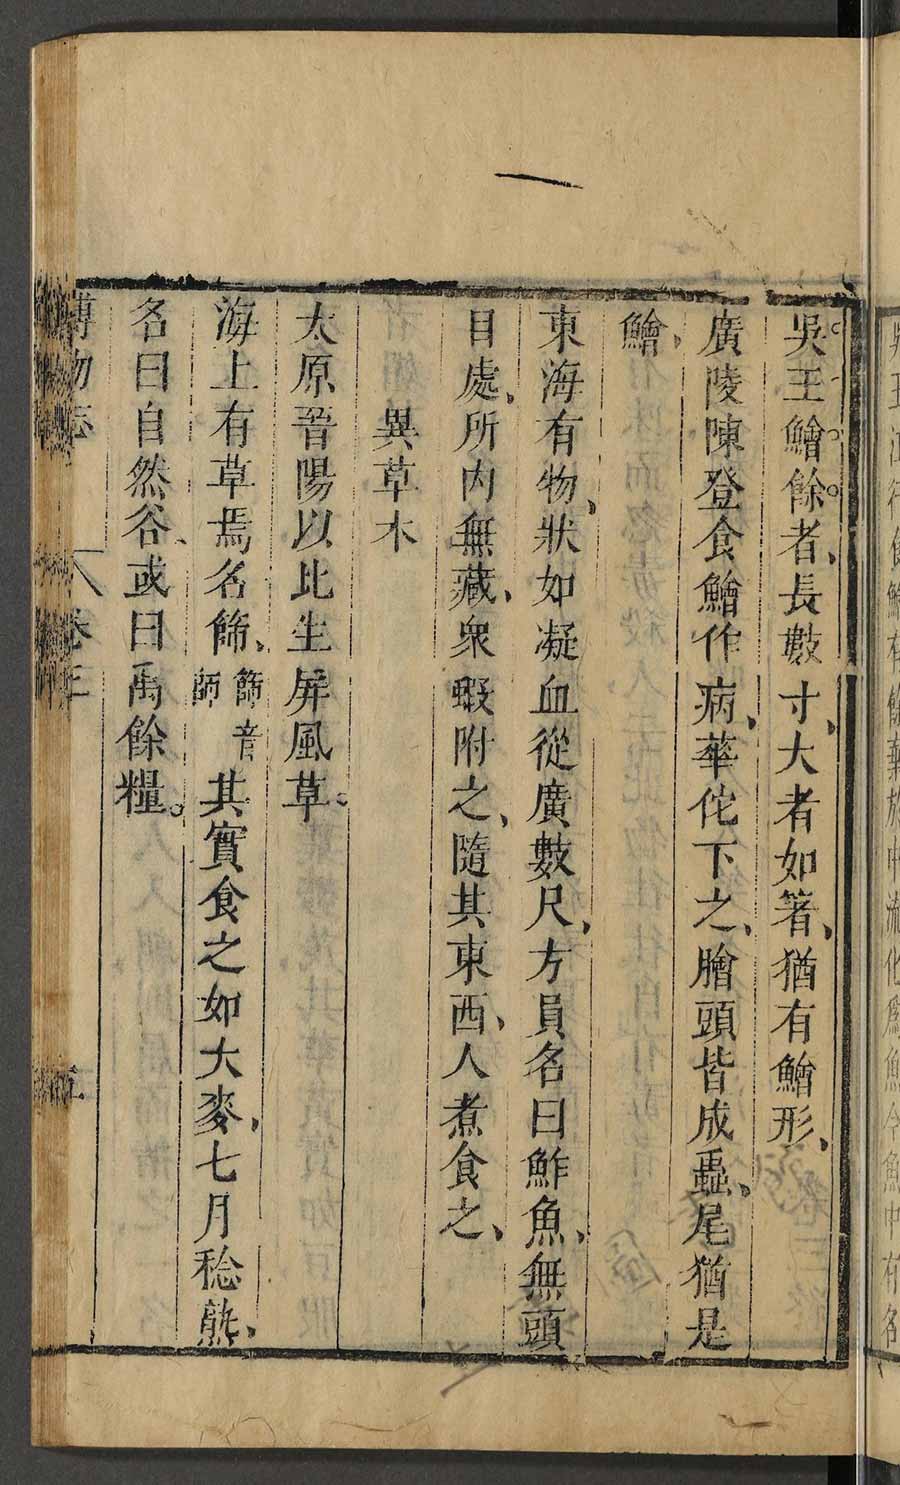 吳王鱠餘者長數寸大者如箸猶有鱠形
廣陵陳登食鱠作病華佗下之膾頭皆成蟲尾猶是
鱠
東海有物狀如凝血從廣數尺方員名曰鮓魚無頭
目處所内無藏衆蝦附之隨其東西人煮食之
異草木
太原晉陽以北生屏風草
海上有草焉名篩篩音師其實食之如大麥七月稔熟
名曰自然谷或曰禹餘糧
博物志 卷三 五